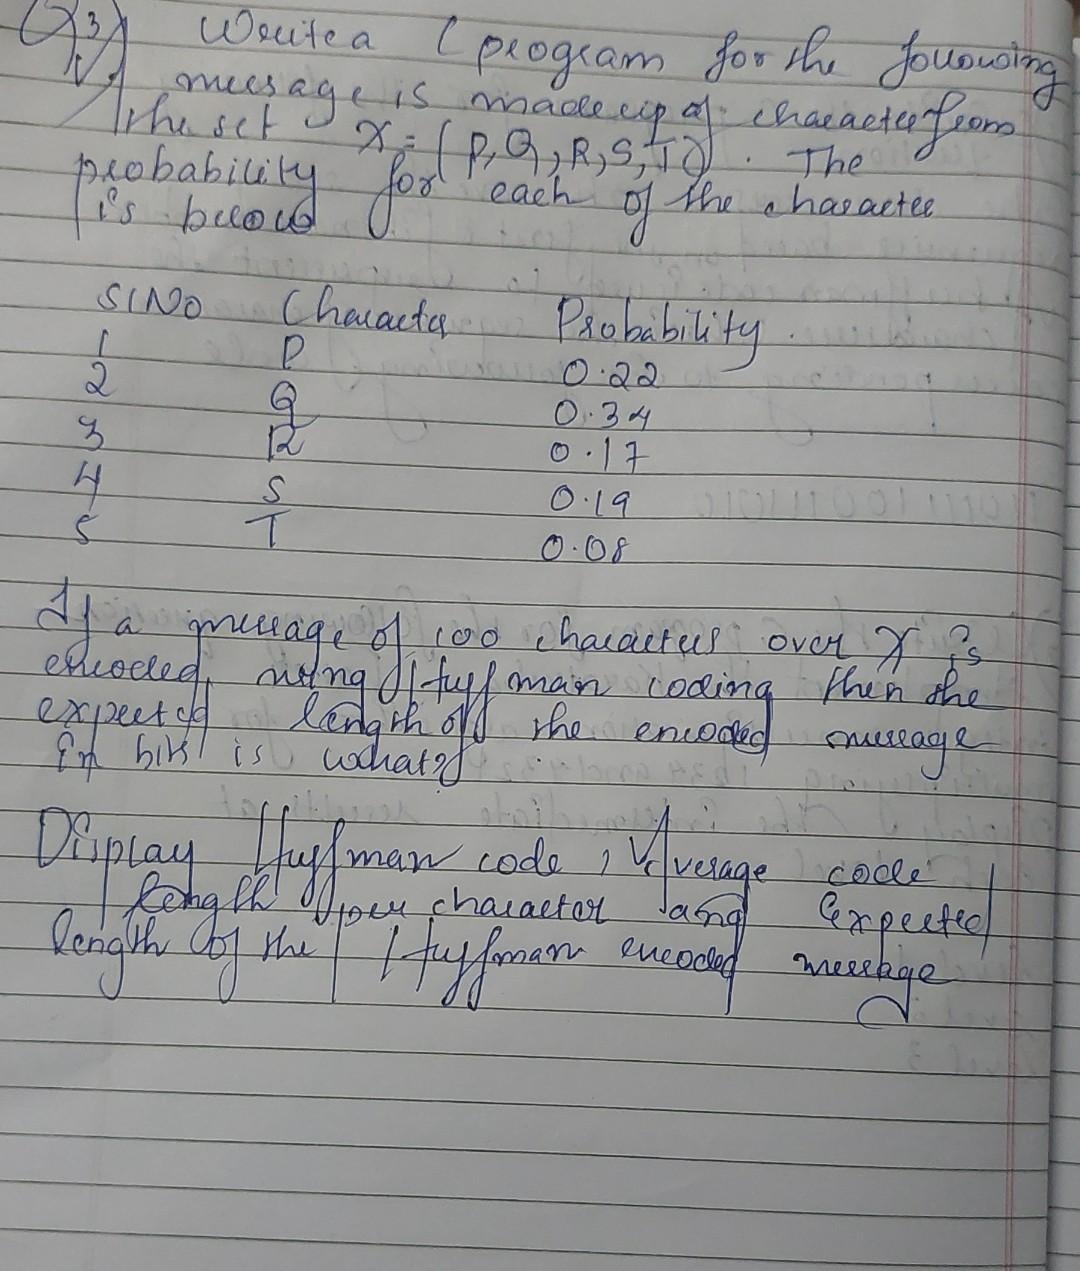 Q3) Write a C program for the following
message is made up of character from
the set X = (P, Q, R, S, T). The
probability for each of the character
is below
Sl No Character Probability.
1 P 0.22
2 Q 0.34
3 R 0.17
4 S 0.19
5 T 0.08
If a message of 100 characters over X is
encoded using Huffman coding then the
expected length of the encoded message
in bits is what?
Display Huffman code, Average code
length per character and expected
length of the Huffman encoded message